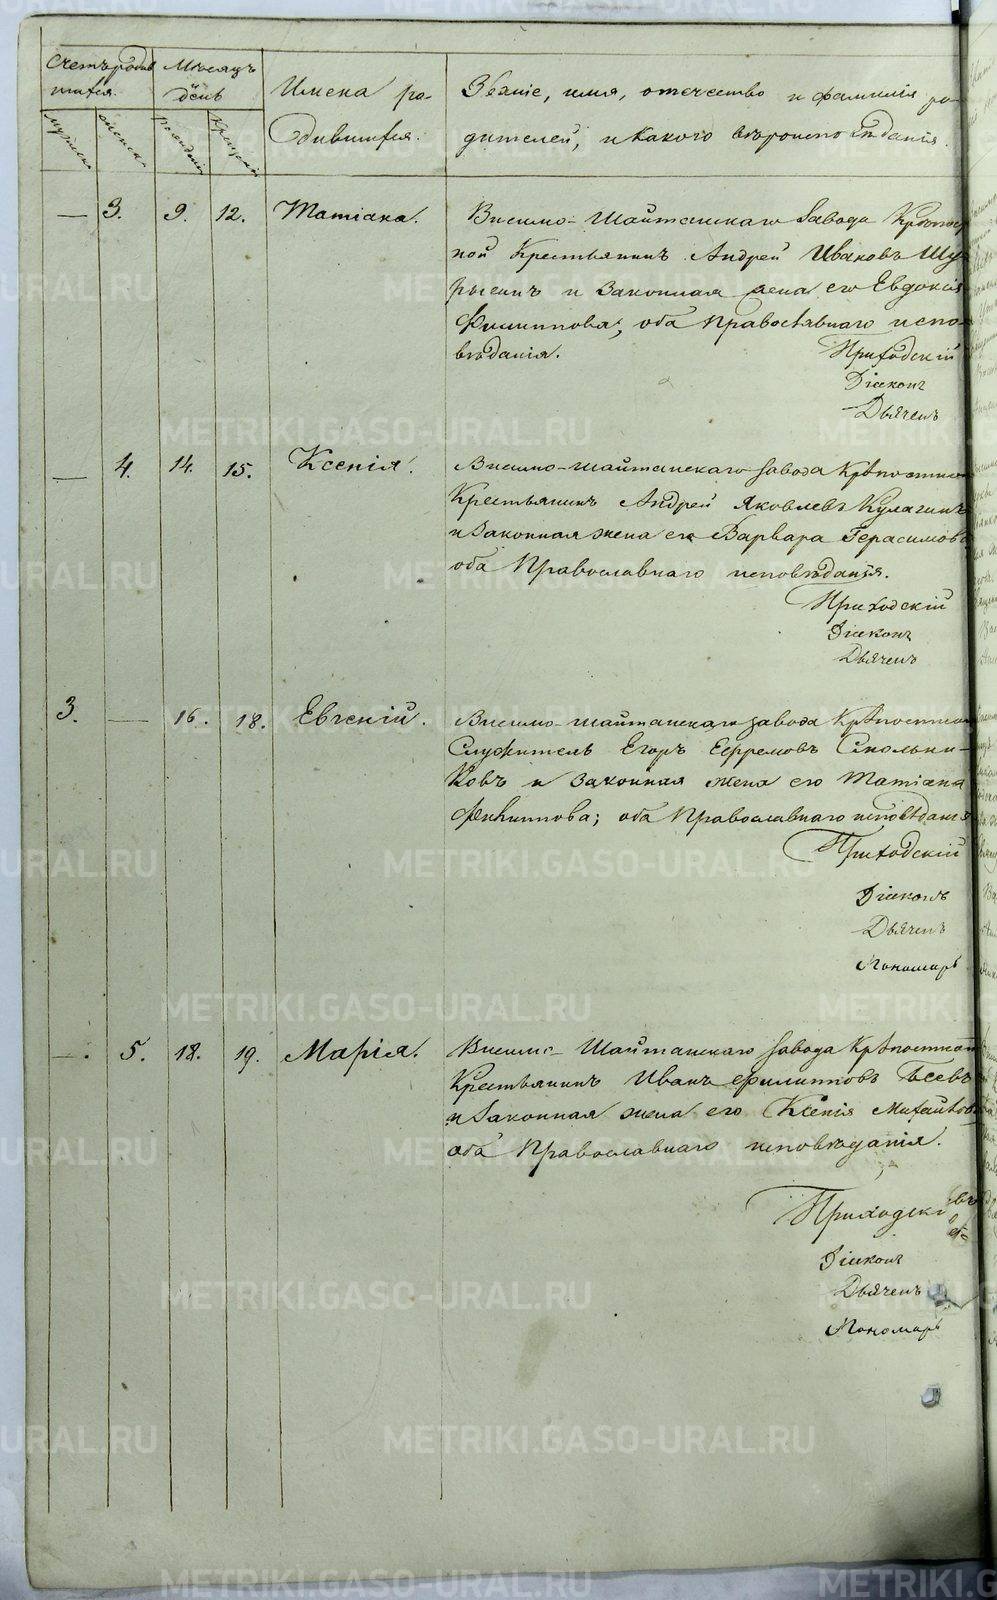 Счетъ родив Мѣсяцъ Имена ро- Званіе, имя, отчество и фамилія ро-
шихся. день дившихся. дителей, и какого вѣроисповѣданія.
мужеска женска рожденія крещенія
— 3. 9. 12. Татіана. Висимо-Шайтанскаго завода Крѣпост
ной Крестьянинъ Андрей Ивановъ
и законная жена его Евдокія
Филиппова, оба Православнаго испо-
вѣданія. Приходскій
Діаконъ
Дьячекъ
— 4. 14. 15. Ксенія. Висимо-шайтанскаго завода Крѣпостно
Крестьянинъ Андрей Яковлевъ Кулагинъ
и законная жена его Варвара Герасимова
оба Православнаго исповѣданія.
Приходскій
Діаконъ
Дьячекъ
3. — 16. 18. Евгеній. Висимо-шайтанскаго завода Крѣпостной
Служитель Егоръ Ефремовъ Смольни-
ковъ и законная жена его Татіана
оба Православнаго исповѣданія
Приходскій
Діаконъ
Дьячекъ
Пономарь
— . 5. 18. 19. Марія. Висимо-Шайтанскаго завода Крѣпостной
Крестьянинъ Иванъ Филипповъ
и законная жена его Ксенія Михайлова
оба Православнаго исповѣданія.
Приходскі
Діаконъ
Дьячекъ
Пономарь
METRIKI.GASO-URAL.RU